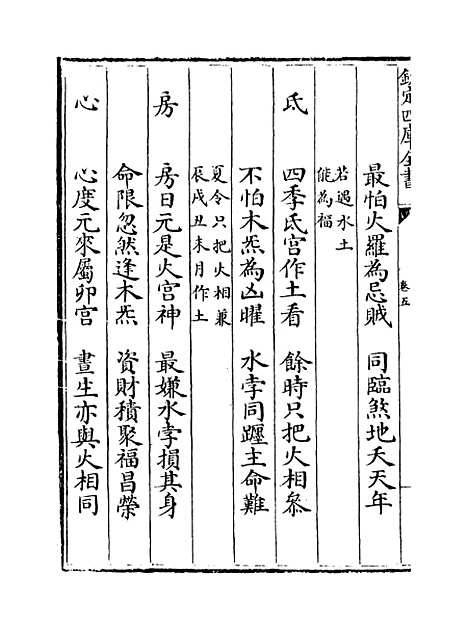 欽定四庫全書
卷五
最怕火羅為忌賊 同臨煞地夭天年
若遇水土
能為福
氐 四季氐宮作土看 餘時只把火相叅
不怕木炁為凶曜 水孛同躔主命難
夏令只把火相兼
辰戌丑未月作土
房 房日元是火宮神 最嫌水孛損其身
命限忽然逢木炁 資財積聚福昌榮
心 心度元來屬卯宮 晝生亦與火相同